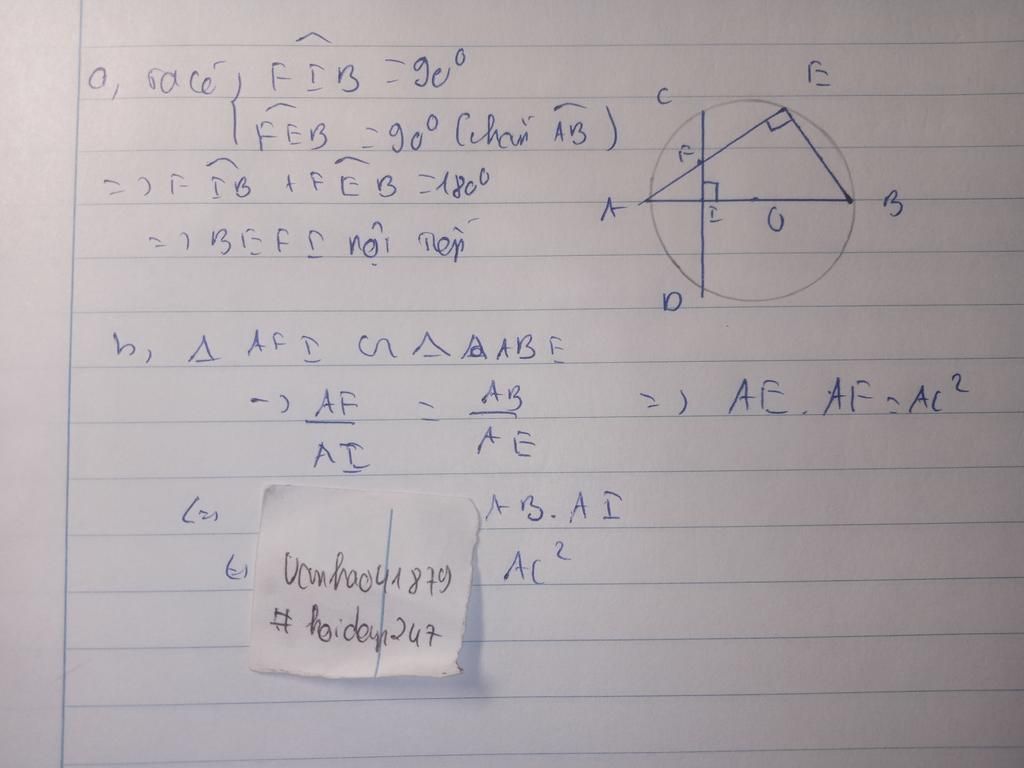 a, ta có, { F̂IB = 90⁰
FEB = 90⁰ (chắn AB)
=> FIB + FEB = 180⁰
=> BEFI nội tiếp
C
E
F
A
I
O
B
D
b, Δ AFI ∽ Δ ABE
=> AF/AI = AB/AE => AE. AF = AC²
(=) AB. AI
AC²
Vanhao41879
# hoidap247